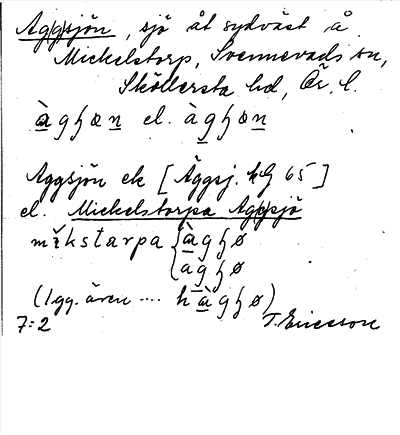 Aggsjön, sjö åt sydväst å
Mickelstorp, Svennevads sn,
Sköllersta hd, Ör. l.
àgɧøn el. àgɧøn
Aggsjön ek [Äggsj. hG 65]
el. Mickelstorpa Aggsjö
mikstarpa { àgɧø
agɧø
(1gg. ären .... hàgɧø)
7:2 T. Ericsson